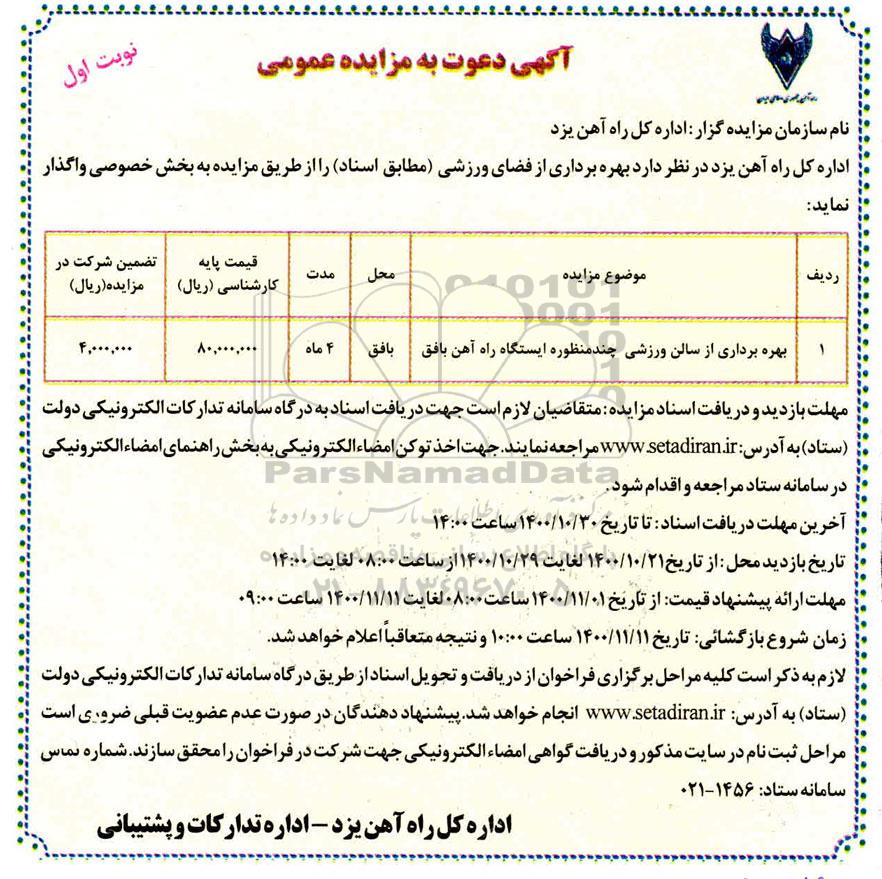 نوبت اول
آگهی دعوت به مزایده عمومی
راه آهن جمهوری اسلامی ایران
نام سازمان مزایده گزار: اداره کل راه آهن یزد
اداره کل راه آهن یزد در نظر دارد بهره برداری از فضای ورزشی (مطابق اسناد) را از طریق مزایده به بخش خصوصی واگذار
نماید:
ردیف	موضوع مزایده	محل	مدت	قیمت پایه کارشناسی (ریال)	تضمین شرکت در مزایده(ریال)
۱	بهره برداری از سالن ورزشی چندمنظوره ایستگاه راه آهن بافق	بافق	۴ ماه	۸۰,۰۰۰,۰۰۰	۴,۰۰۰,۰۰۰
مهلت بازدید و دریافت اسناد مزایده: متقاضیان لازم است جهت دریافت اسناد به درگاه سامانه تدارکات الکترونیکی دولت
(ستاد) به آدرس: www.setadiran.ir مراجعه نمایند. جهت اخذ توکن امضاء الکترونیکی به بخش راهنمای امضاء الکترونیکی
در سامانه ستاد مراجعه و اقدام شود.
ParsNamadData
آخرین مهلت دریافت اسناد: تا تاریخ ۱۴۰۰/۱۰/۳۰ ساعت ۱۴:۰۰
تاریخ بازدید محل: از تاریخ ۱۴۰۰/۱۰/۲۱ لغایت ۱۴۰۰/۱۰/۲۹ از ساعت ۰۸:۰۰ لغایت ۱۴:۰۰
مهلت ارائه پیشنهاد قیمت: از تاریخ ۱۴۰۰/۱۱/۰۱ ساعت ۰۸:۰۰ لغایت ۱۴۰۰/۱۱/۱۱ ساعت ۰۹:۰۰
زمان شروع بازگشائی: تاریخ ۱۴۰۰/۱۱/۱۱ ساعت ۱۰:۰۰ و نتیجه متعاقباً اعلام خواهد شد.
لازم به ذکر است کلیه مراحل برگزاری فراخوان از دریافت و تحویل اسناد از طریق درگاه سامانه تدارکات الکترونیکی دولت
(ستاد) به آدرس: www.setadiran.ir انجام خواهد شد. پیشنهاد دهندگان در صورت عدم عضویت قبلی ضروری است
مراحل ثبت نام در سایت مذکور و دریافت گواهی امضاء الکترونیکی جهت شرکت در فراخوان را محقق سازند. شماره تماس
سامانه ستاد: ۱۴۵۶-۰۲۱
اداره کل راه آهن یزد - اداره تدارکات و پشتیبانی